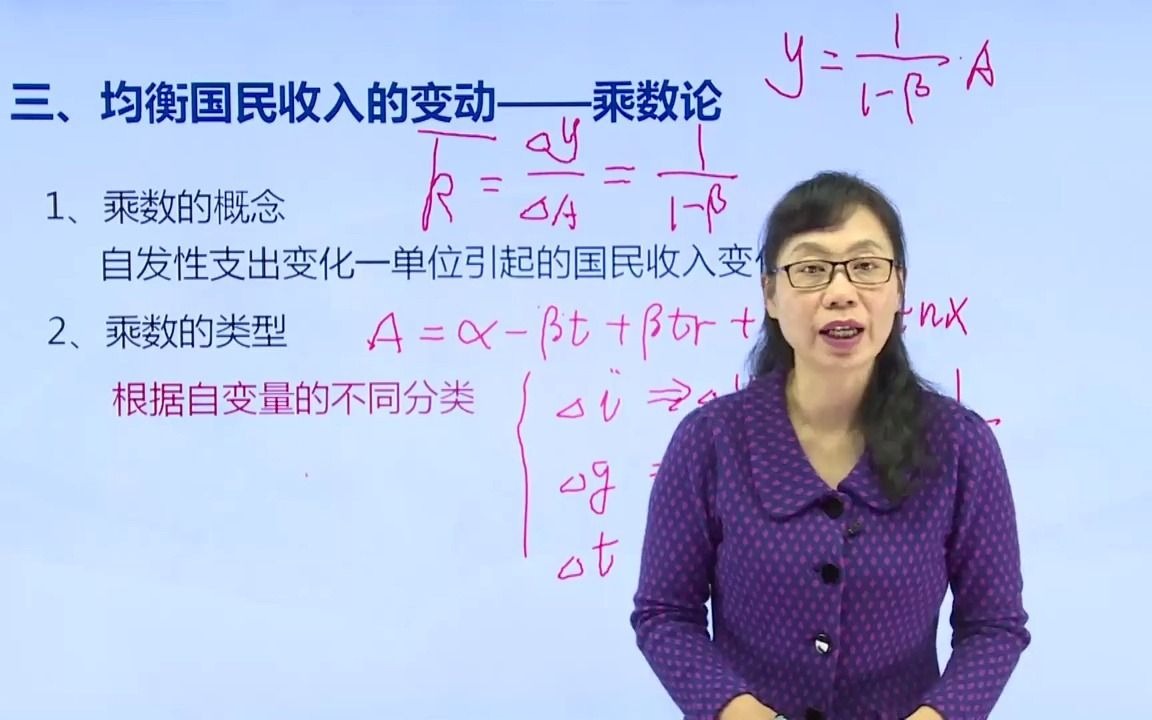 y = 1/(1-β) · A
三、均衡国民收入的变动——乘数论
k = Δy/ΔA = 1/(1-β)
1、乘数的概念
自发性支出变化一单位引起的国民收入变
2、乘数的类型
A = α - βt + βtr + + nx
根据自变量的不同分类
Δi ⇒
Δg =
Δt